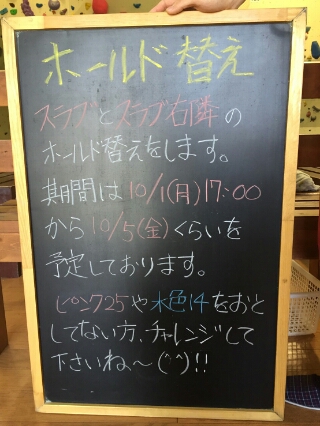 ホールド替え
スラブとスラブ右隣の
ホールド替えをします。
期間は10/1(月)17:00
から10/5(金)くらいを
予定しております。
ピンク25や水色14をおと
してない方、チャレンジして
下さいね〜(^^)!!